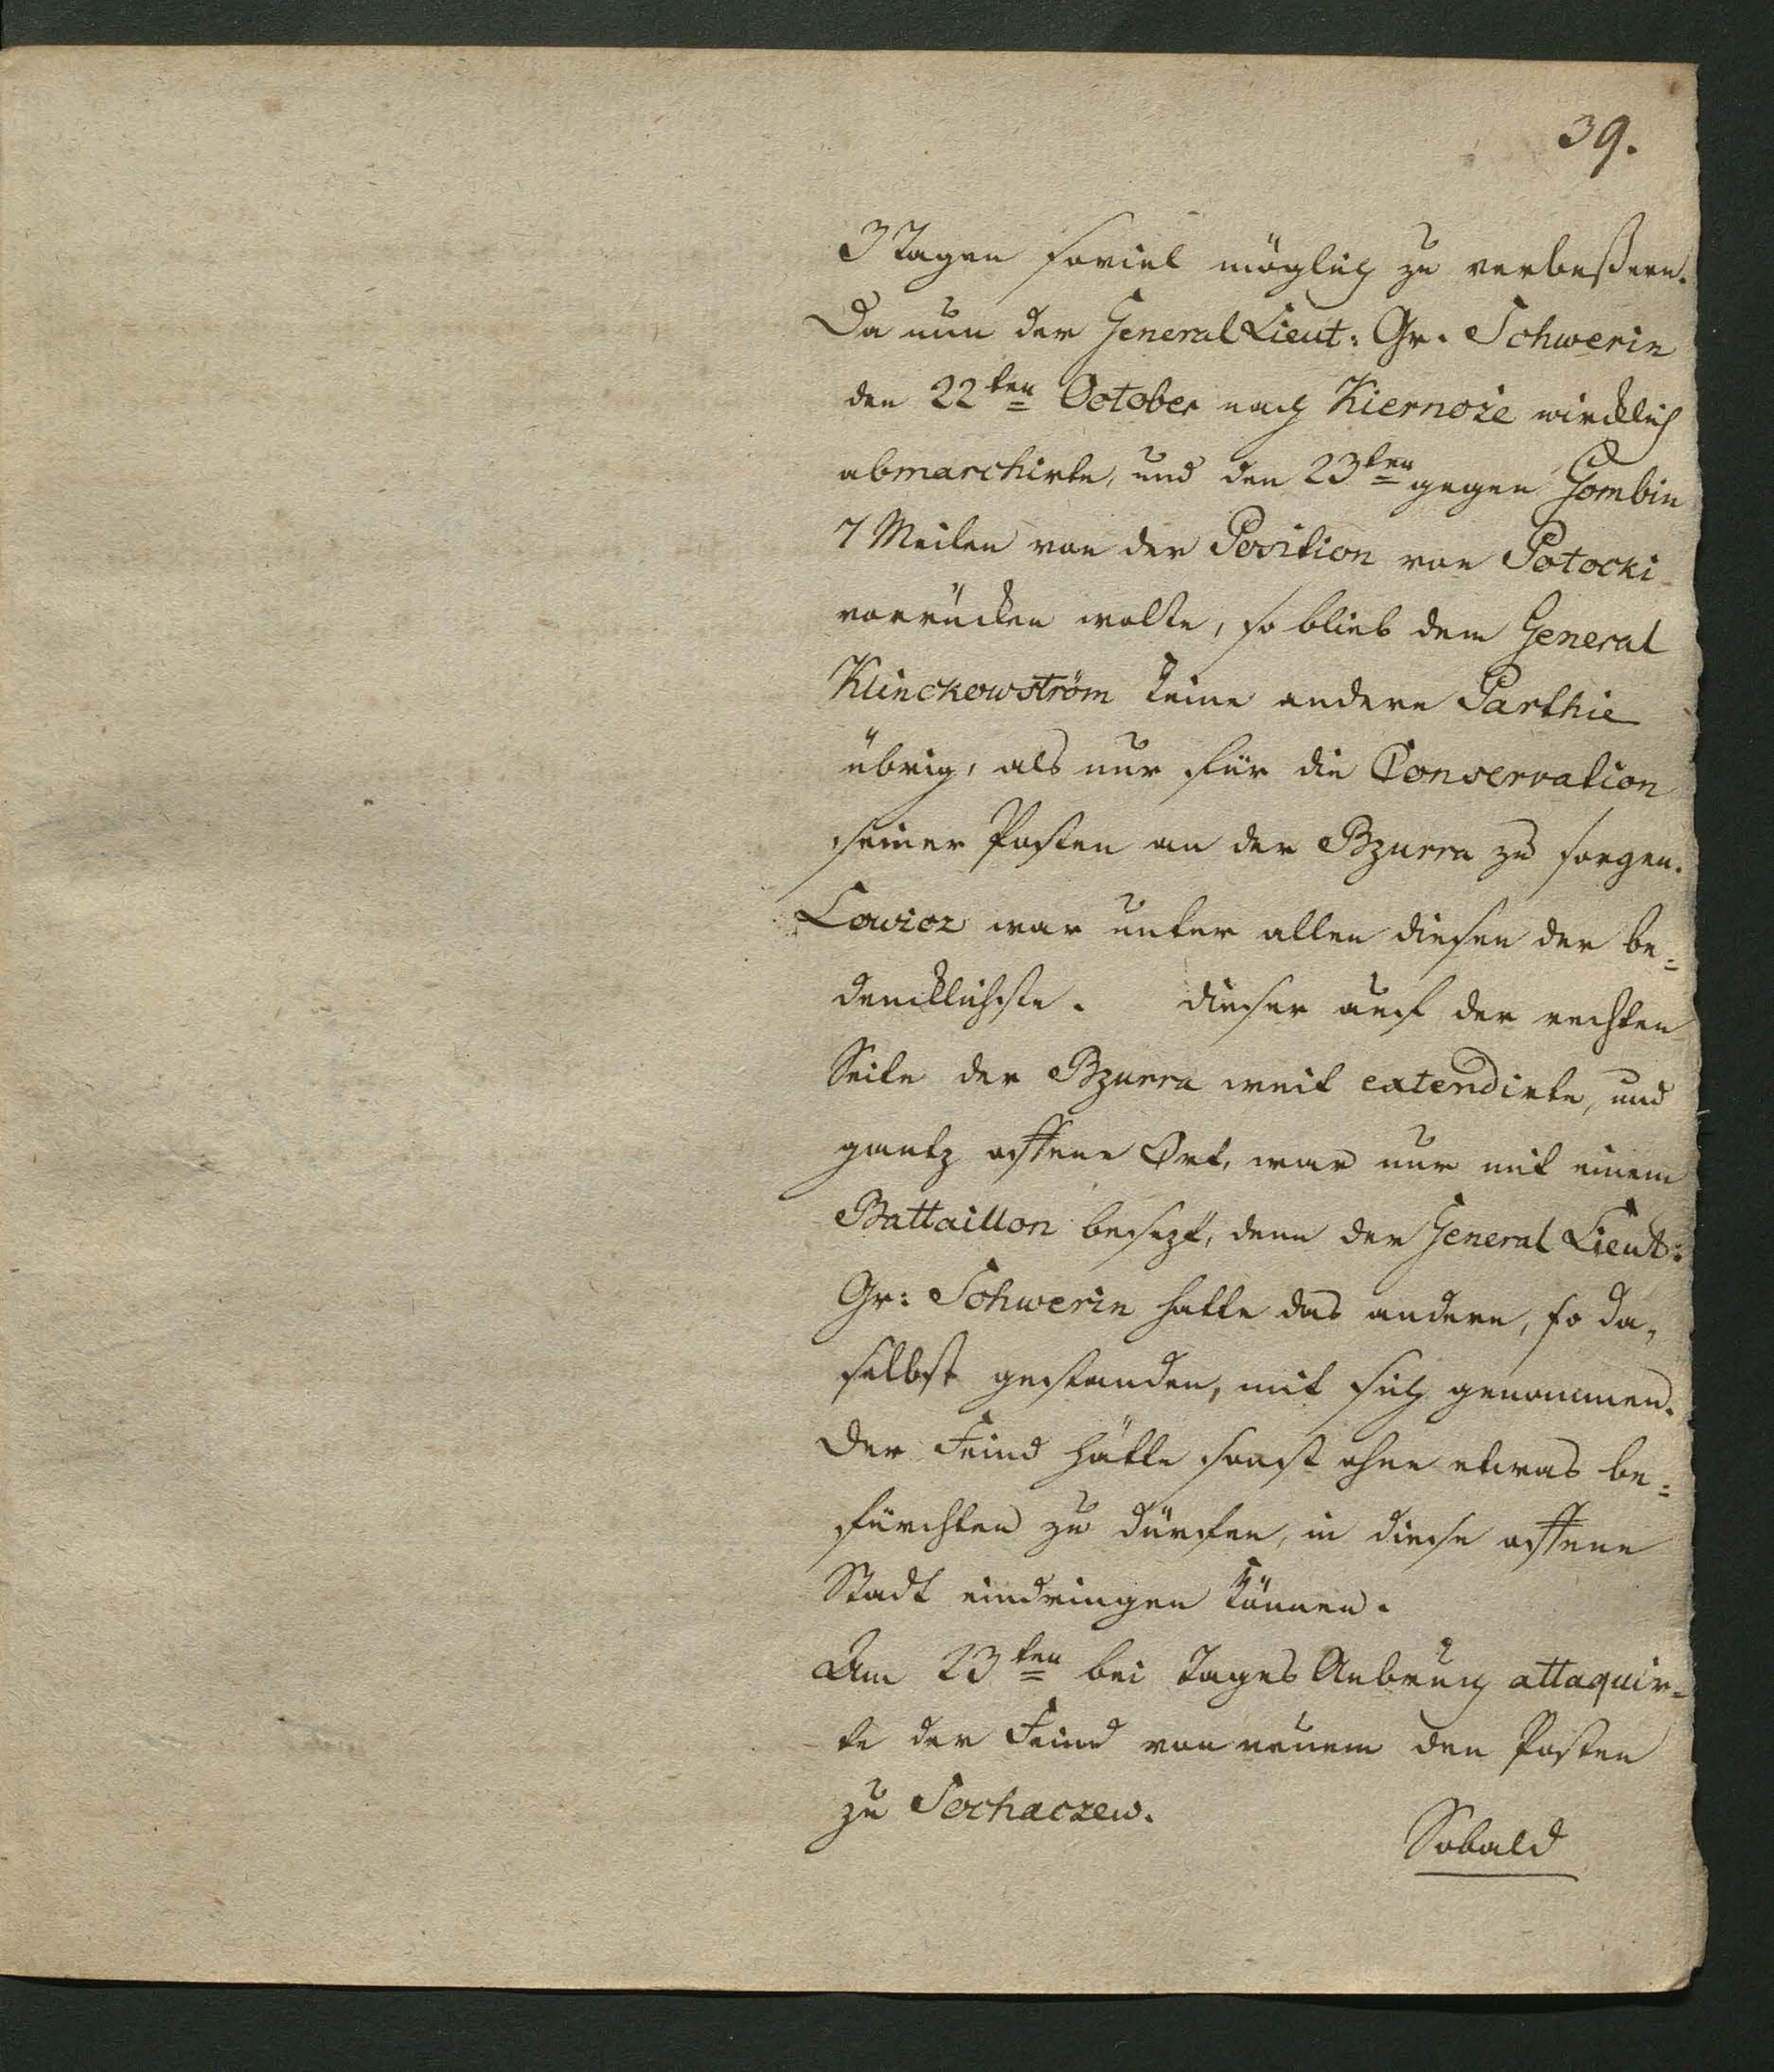 39.
3 Tagen soviel möglich zu verbeßern.
Da nun der General Lieut: Gr. Schwerin
den 22ten October nach Kiernoze wircklich
abmarchirte, und den 23ten gegen Gombin
7 Meilen von der Position von Potocki
vorrücken wolte, so blieb dem General
Klinckowström keine andere Parthie
übrig, als nur für die Conservation
seiner Posten an der Bzurra zu sorgen.
Lowicz war unter allen diesen der be=
dencklichste. dieser auf der rechten
Seite der Bzurra weit extendirte, und
gantz offene Ort, war nur mit einem
Battaillon besezt, denn der General Lieut:
Gr: Schwerin hatte das andere, so da,
selbst gestanden, mit sich genommen.
Der Feind hätte sonst ohne etwas be=
fürchten zu dürfen, in diese offene
Stadt eindringen können.
Am 23ten bei Tages Anbruch attaquir=
te der Feind von neuem den Posten
zu Sochaczew.
Sobald